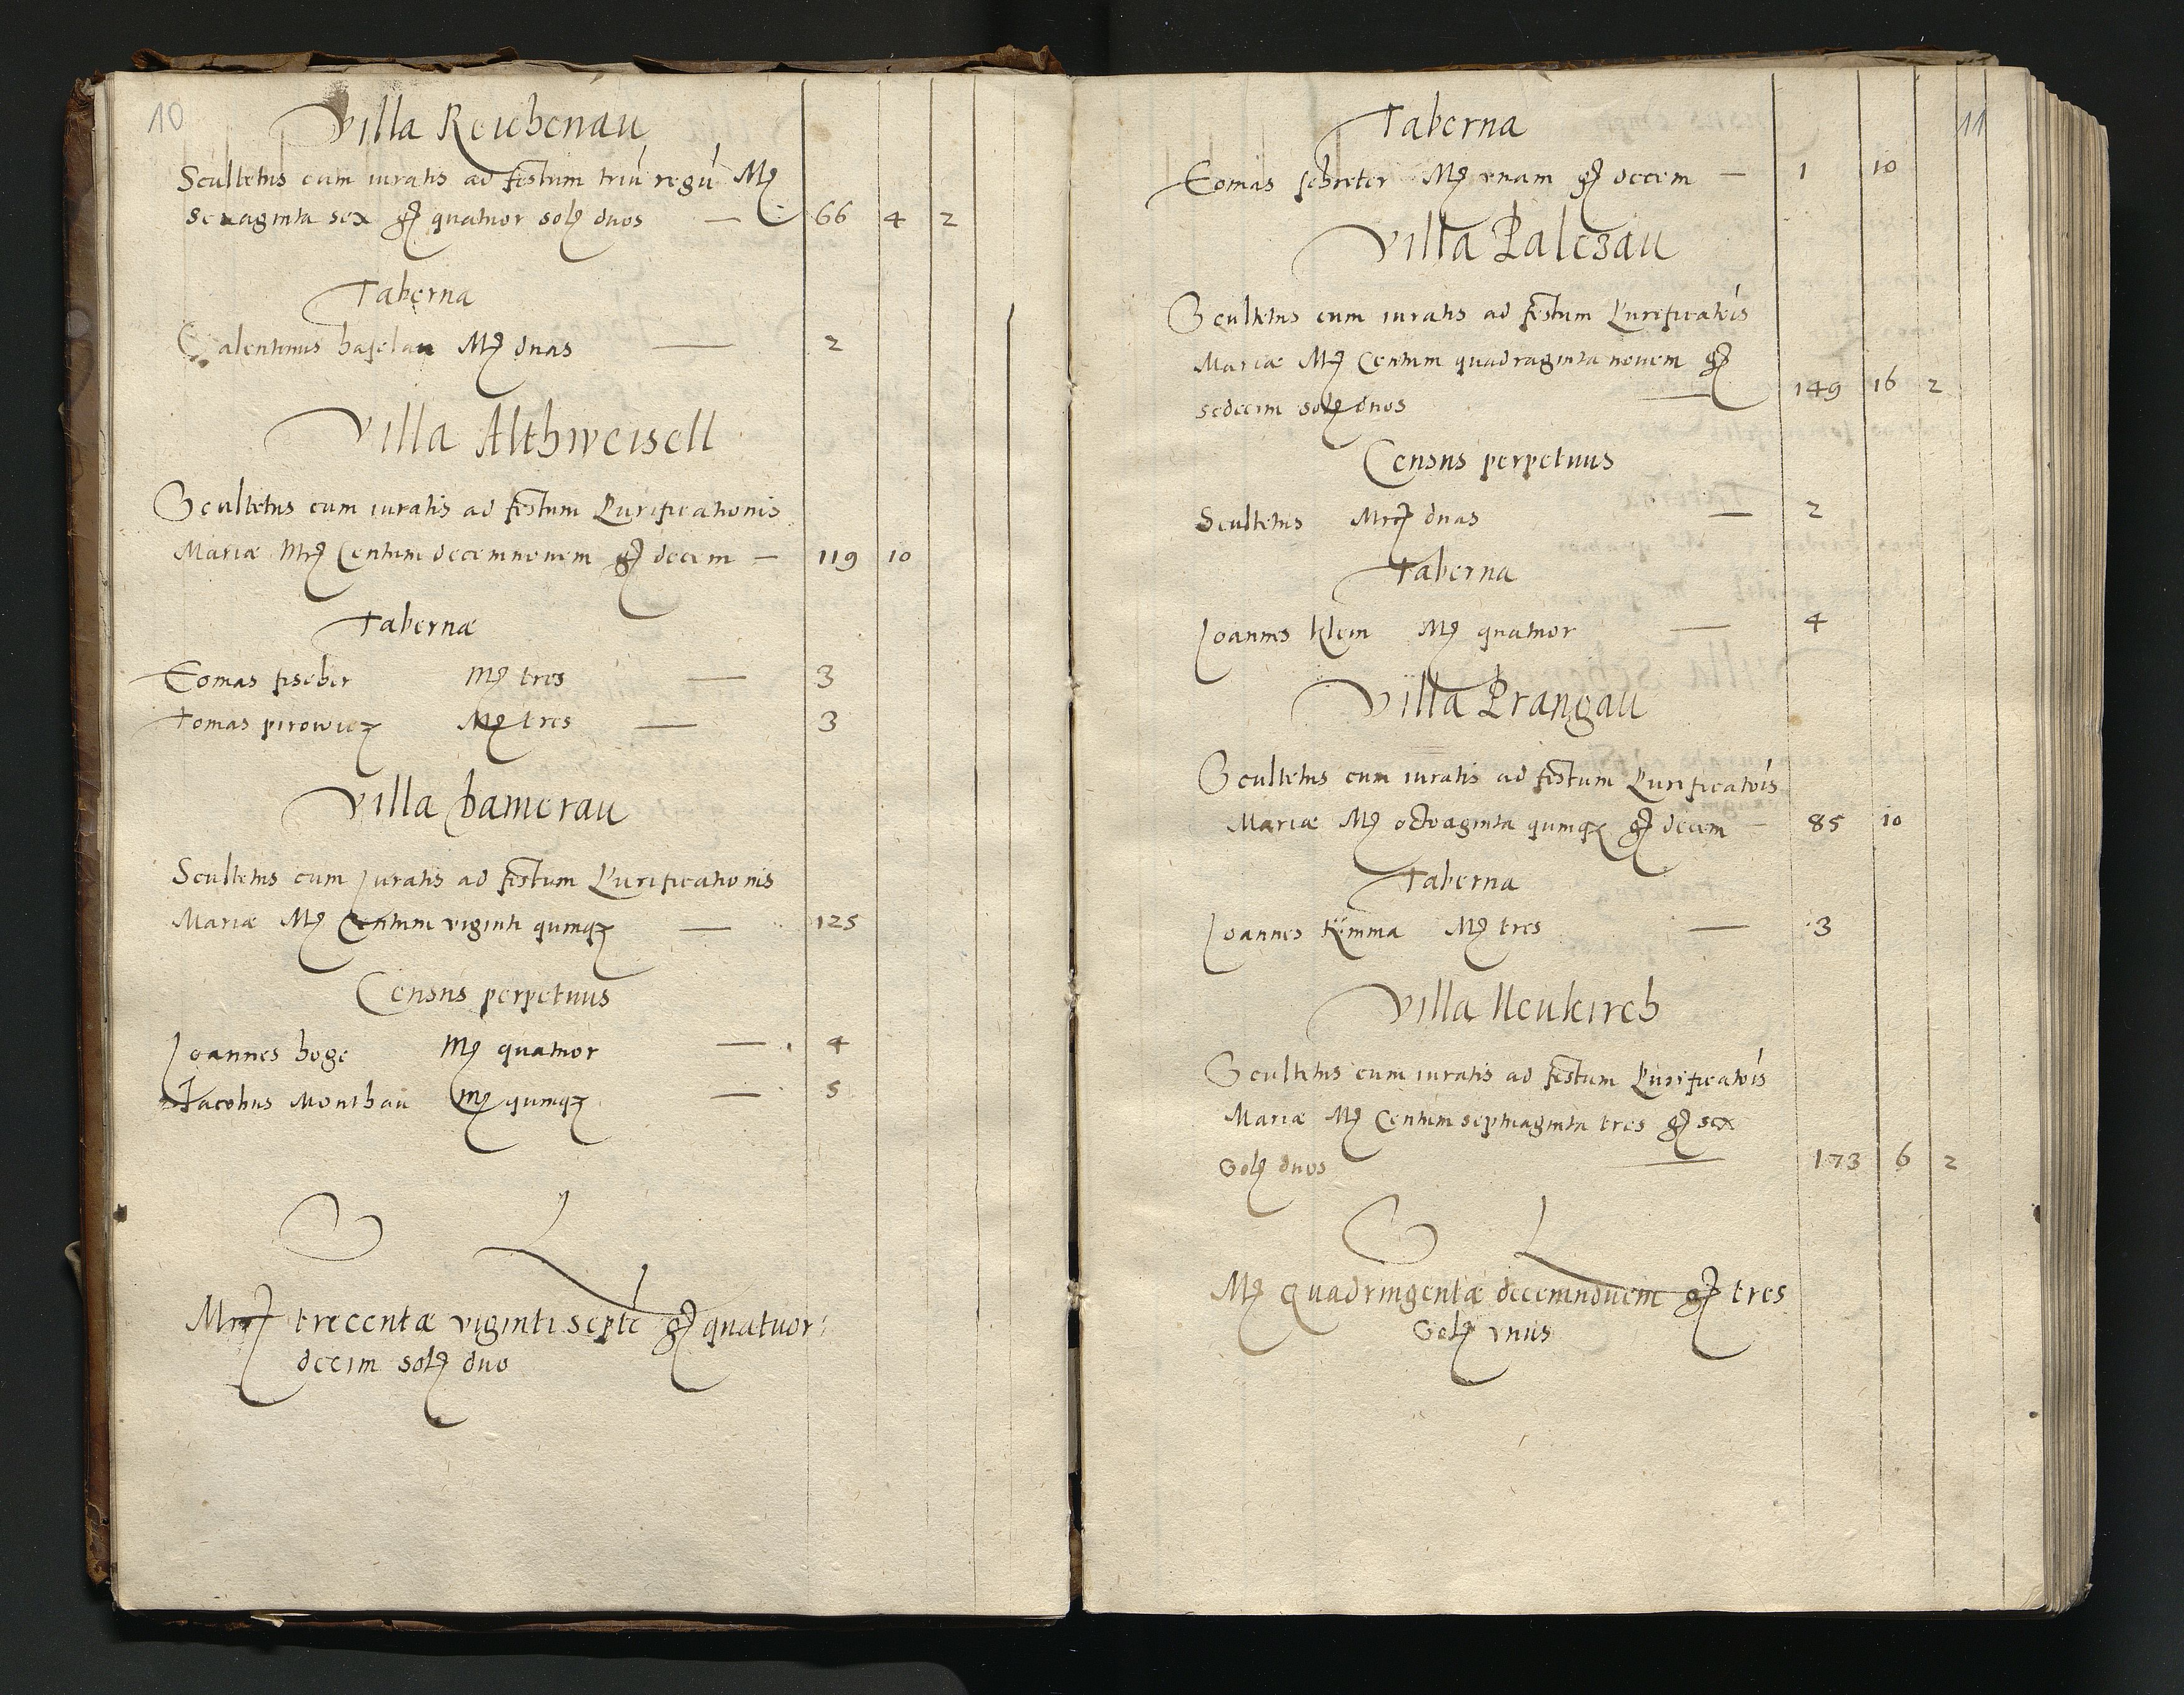 10
Villa Reichenau
Scultetus cum iuratis ad festum triū regū Mꝫ
sexaginta sex gꝫ quatuor solꝫ duos — 66 4 2
Taberna
Valentinus haselau Mꝫ duas — 2
Villa Althweisell
Scultetus cum iuratis ad festum Purificationis
Mariæ Mrꝫ Centum decemnovem gꝫ decem — 119 10
Tabernæ
Tomas fischer Mꝫ tres — 3
Tomas pirowicz Mꝫ tres — 3
Villa hamerau
Scultetus cum Juratis ad festum Purificationis
Mariæ Mꝫ Centum viginti quinqꝫ — 125
Census perpetuus
Joannes hoge Mꝫ quatuor — 4
Jacobus Monthau Mꝫ quinqꝫ — 5
S L
Mrꝫ trecentæ viginti septē gꝫ quatuor:
decim solꝫ duo
11
Taberna
Tomas schreter Mꝫ unam gꝫ decem — 1 10
Villa Palczau
Scultetus cum iuratis ad festum Purificatōis
Mariæ Mꝫ Centum quadraginta novem gꝫ
sedecim solꝫ duos — 149 16 2
Census perpetuus
Scultetus Mrꝫ duas — 2
Taberna
Joannes klein Mꝫ quatuor — 4
Villa Prangau
Scultetus cum iuratis ad festum Purificatōis
Mariæ Mꝫ octoaginta quinqꝫ gꝫ decem — 85 10
Taberna
Joannes Kimma Mꝫ tres — 3
Villa Neukirch
Scultetus cum iuratis ad festum Purificatōis
Mariæ Mꝫ Centum septuaginta tres gꝫ sex
Solꝫ duos — 173 6 2
S L
Mꝫ Quadringentæ decemnovem gꝫ tres
Solꝫ vnus